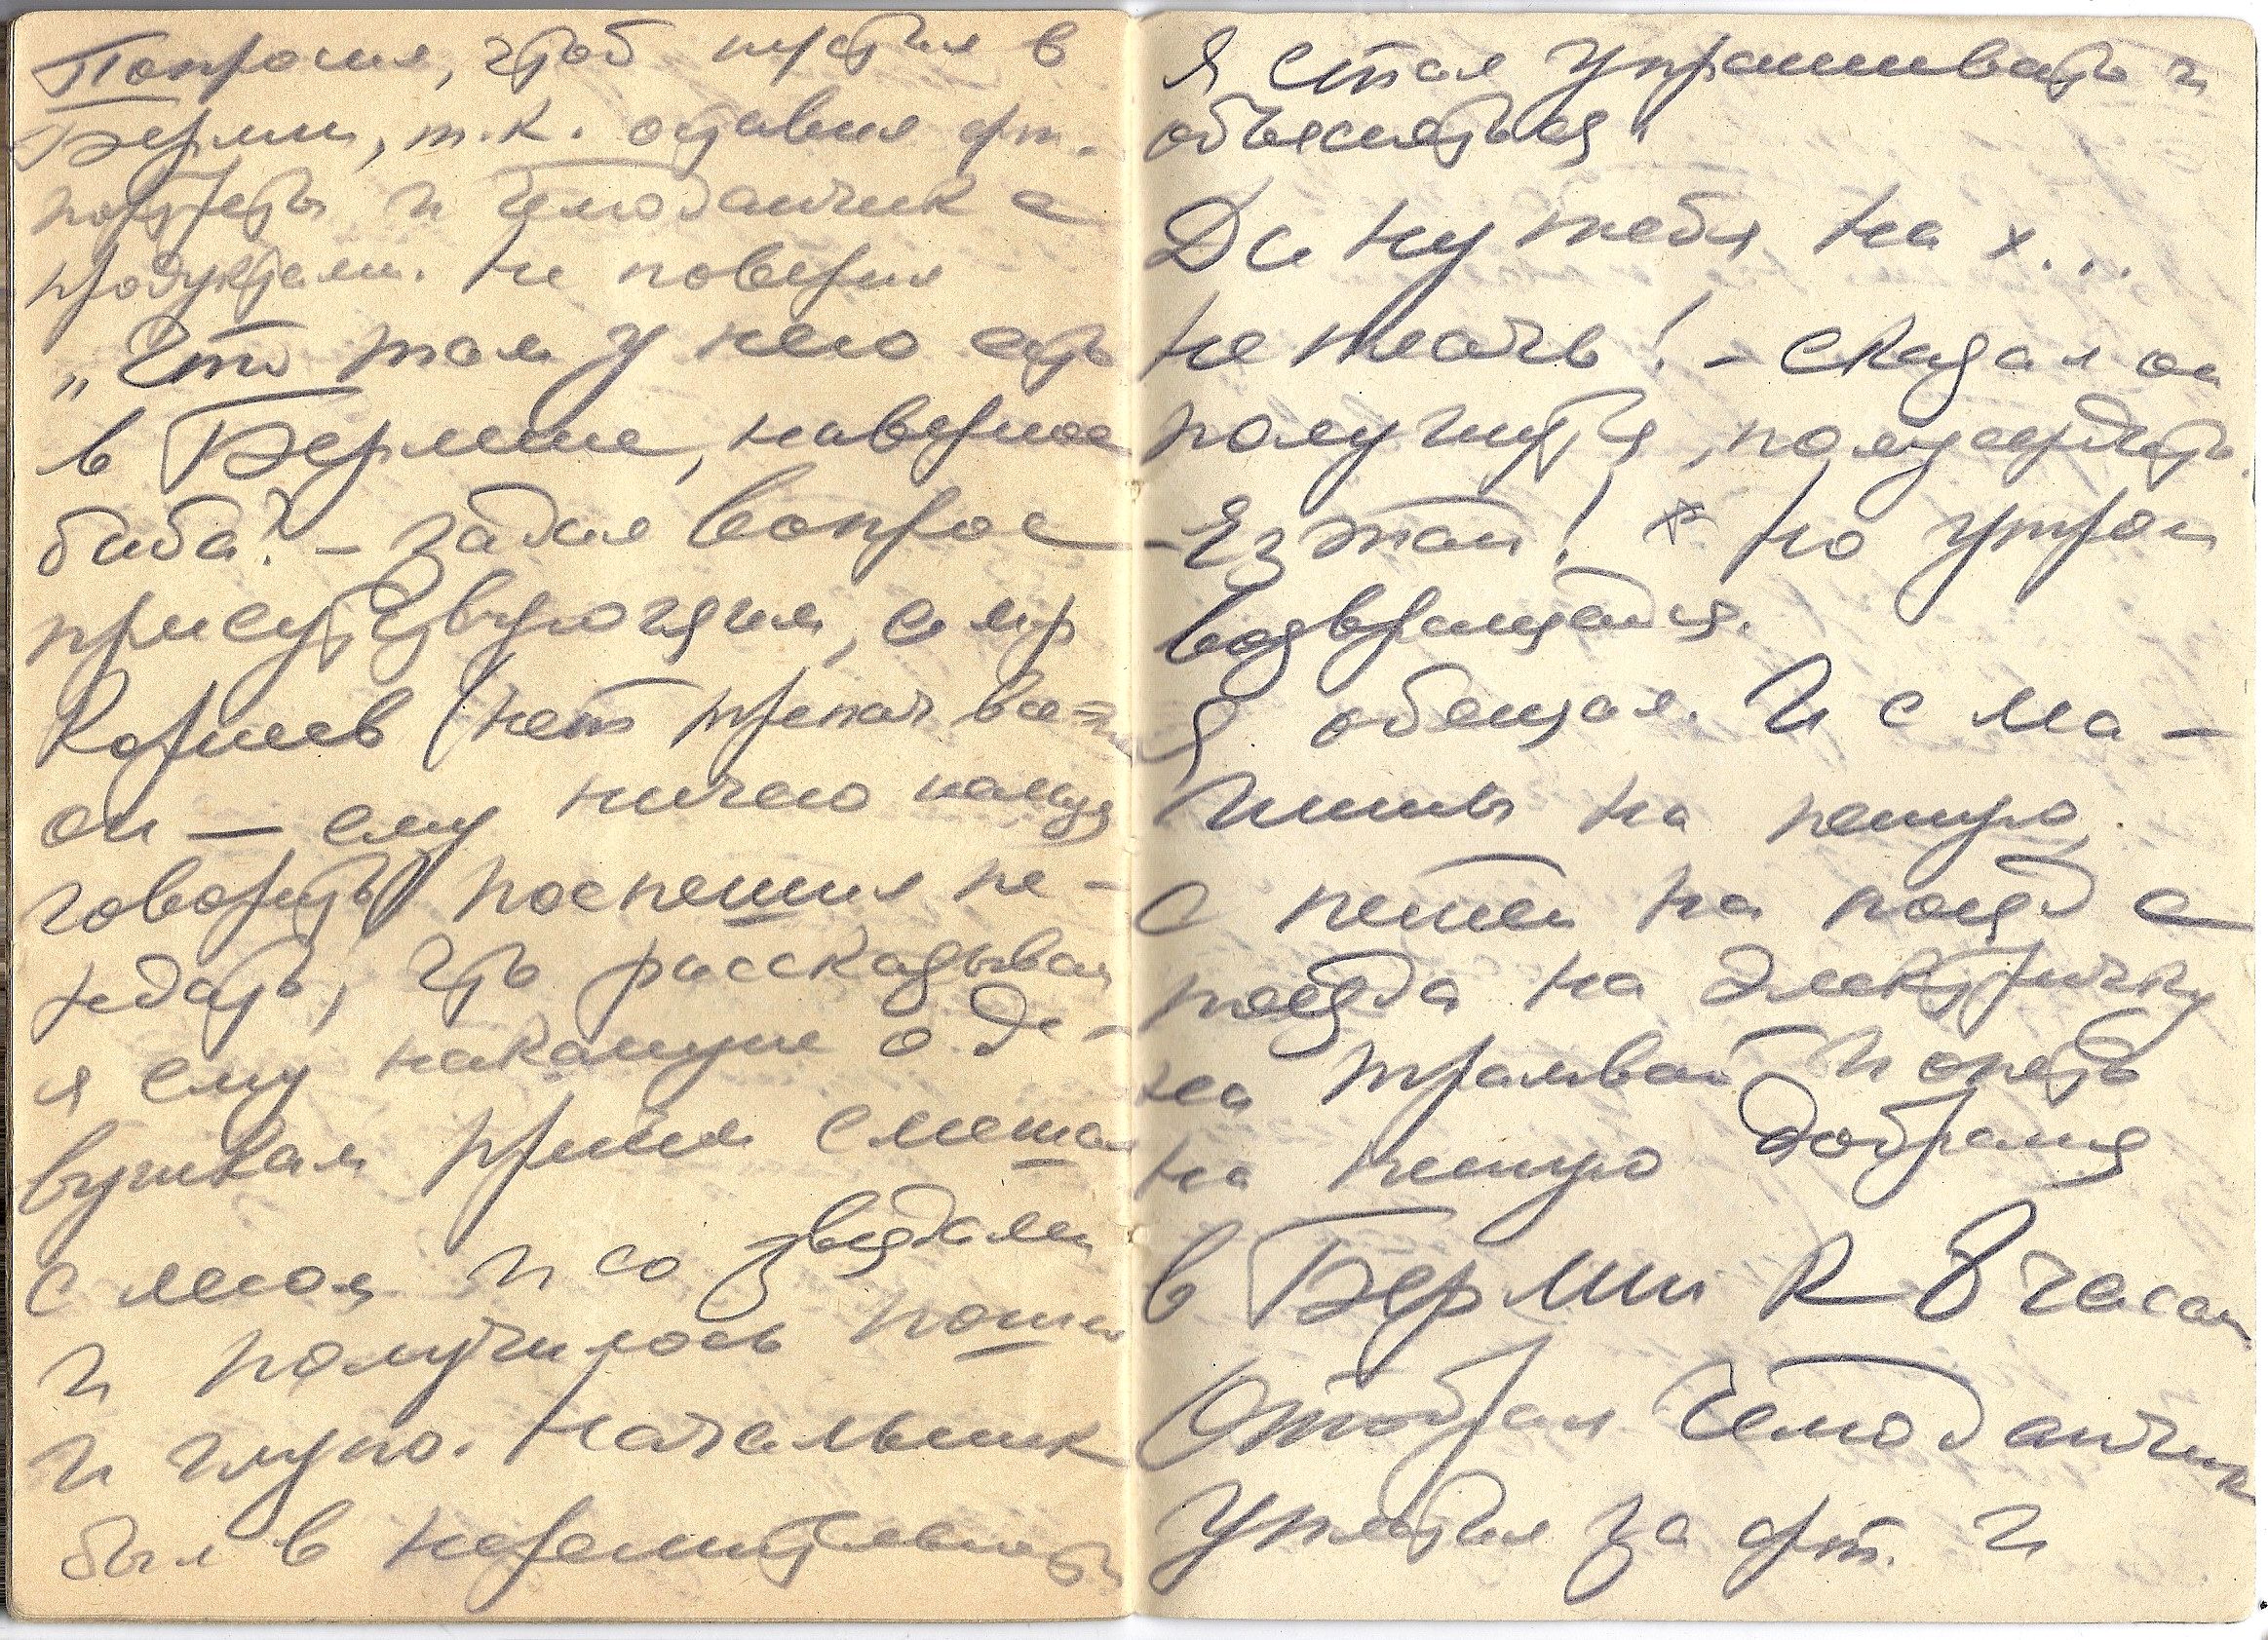 Попросил, чтоб пустил в
Берлин, т.к. оставил фт.
портреты и чемоданчик с
продуктами. Не поверил
„Что там у него есть
в Берлине, наверное
баба? – задал вопрос
присутствующим, а мр
Корнев (нет трепач
он — ему ничего нельзя
говорить) поспешил пе-
редать, что рассказывал
я ему накануне о де-
вушках причем смешал
с мной и со звездами
и получилось пошло
и глупо. Начальник
был в нерешительности
Я стал упрашивать и
объясняться.
Да ну тебя на х...
не плачь! – сказал он
полушутя, полусердясь.
– Езжай! Но утром
возвращайся.
Я обещал. И с ма-
шины на пешую,
с пешей на поезд с
поезда на электричку
на трамвай и опять
на пешую добрался
в Берлин к 8 часам
Отобрал чемоданчик
Уплатил за фт. и